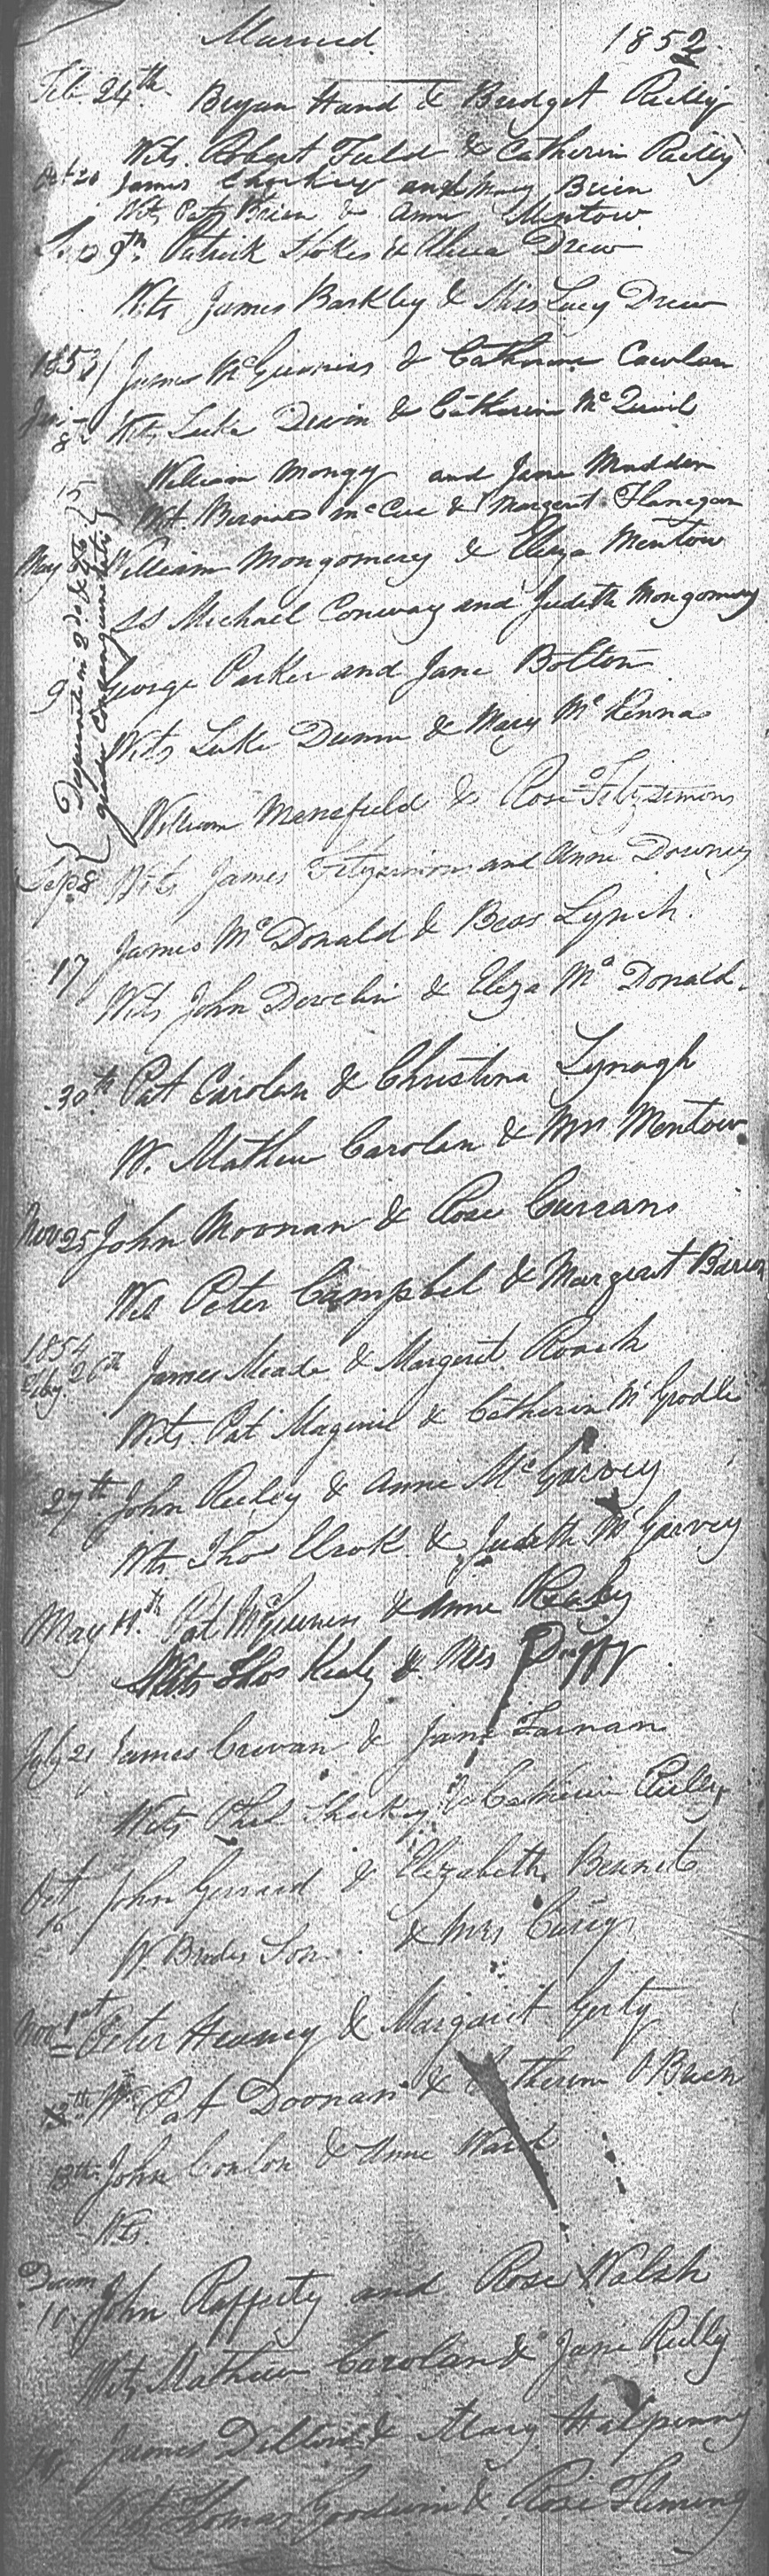 Married. 1852
Feb. 24th Bryan Hand & Bridget Reilly
Wits. Robert Field & Catherin Reilly
Oct 20 James and Mary Brien
Wits Pat Brien & Ann Mentow
9th. Patrick Stokes & Alicia Drew
Wits James Barkley & Miss Lucy Drew
1853 James McGuinniss & Catherine Cawlan
Jan. 8 Wits Luke Devin & Catherin McQuail
15 William Mongy and Jane Madden
Wit. Bernard McCue & Margeret Flanegan
May William Montgomery & Eliza Mentow
SS Michael Conway and Judith Mongomery
9 George Parker and Jane Bolton
Wits Luke Dunn & Mary McKenna
William Mansfield & Rose Fitzsimons
Sep. 8 Wits James Fitzsimons and Anne Downey
17 James McDonald & Bess Lynch.
Wits John Devclin & Eliza McDonald.
30th Pat Carolan & Christina Lynagh
W. Mathew Carolan & Mrs Mentow
Nov 25 John Noonan & Rose Currans
Wit Peter Campbel & Margeret
1854
Feby. 26th James Meade & Margeret Roach
Wits. Pat Maginis & Catherin
27th John Reiley & Anne McGarvey
Wits. Thos & Judith McGarvey
May 11th Pat McGuiness & Anne Kealy
Wits Thos Kealy & Mrs Duffy
July 21 James Crevan & Jane Farnan
Wits Phil Sharkey & Catherin Reilly
Oct 16 John Gerrard & Elizabeth Bennet
W. Son & Mrs Carey
Nov 1st Peter Heaney & Margaret Gerty
W Pat Doonan & Catherine O'Brien
13th John Conlon & Anne Ward
Wits.
10 John Rafferty and Rose Walsh
Wits Mathew Carolan & Jane Reilly
James Dillon & Mary Halpenny
Wits Thomas Goodwin & Rose Fleming